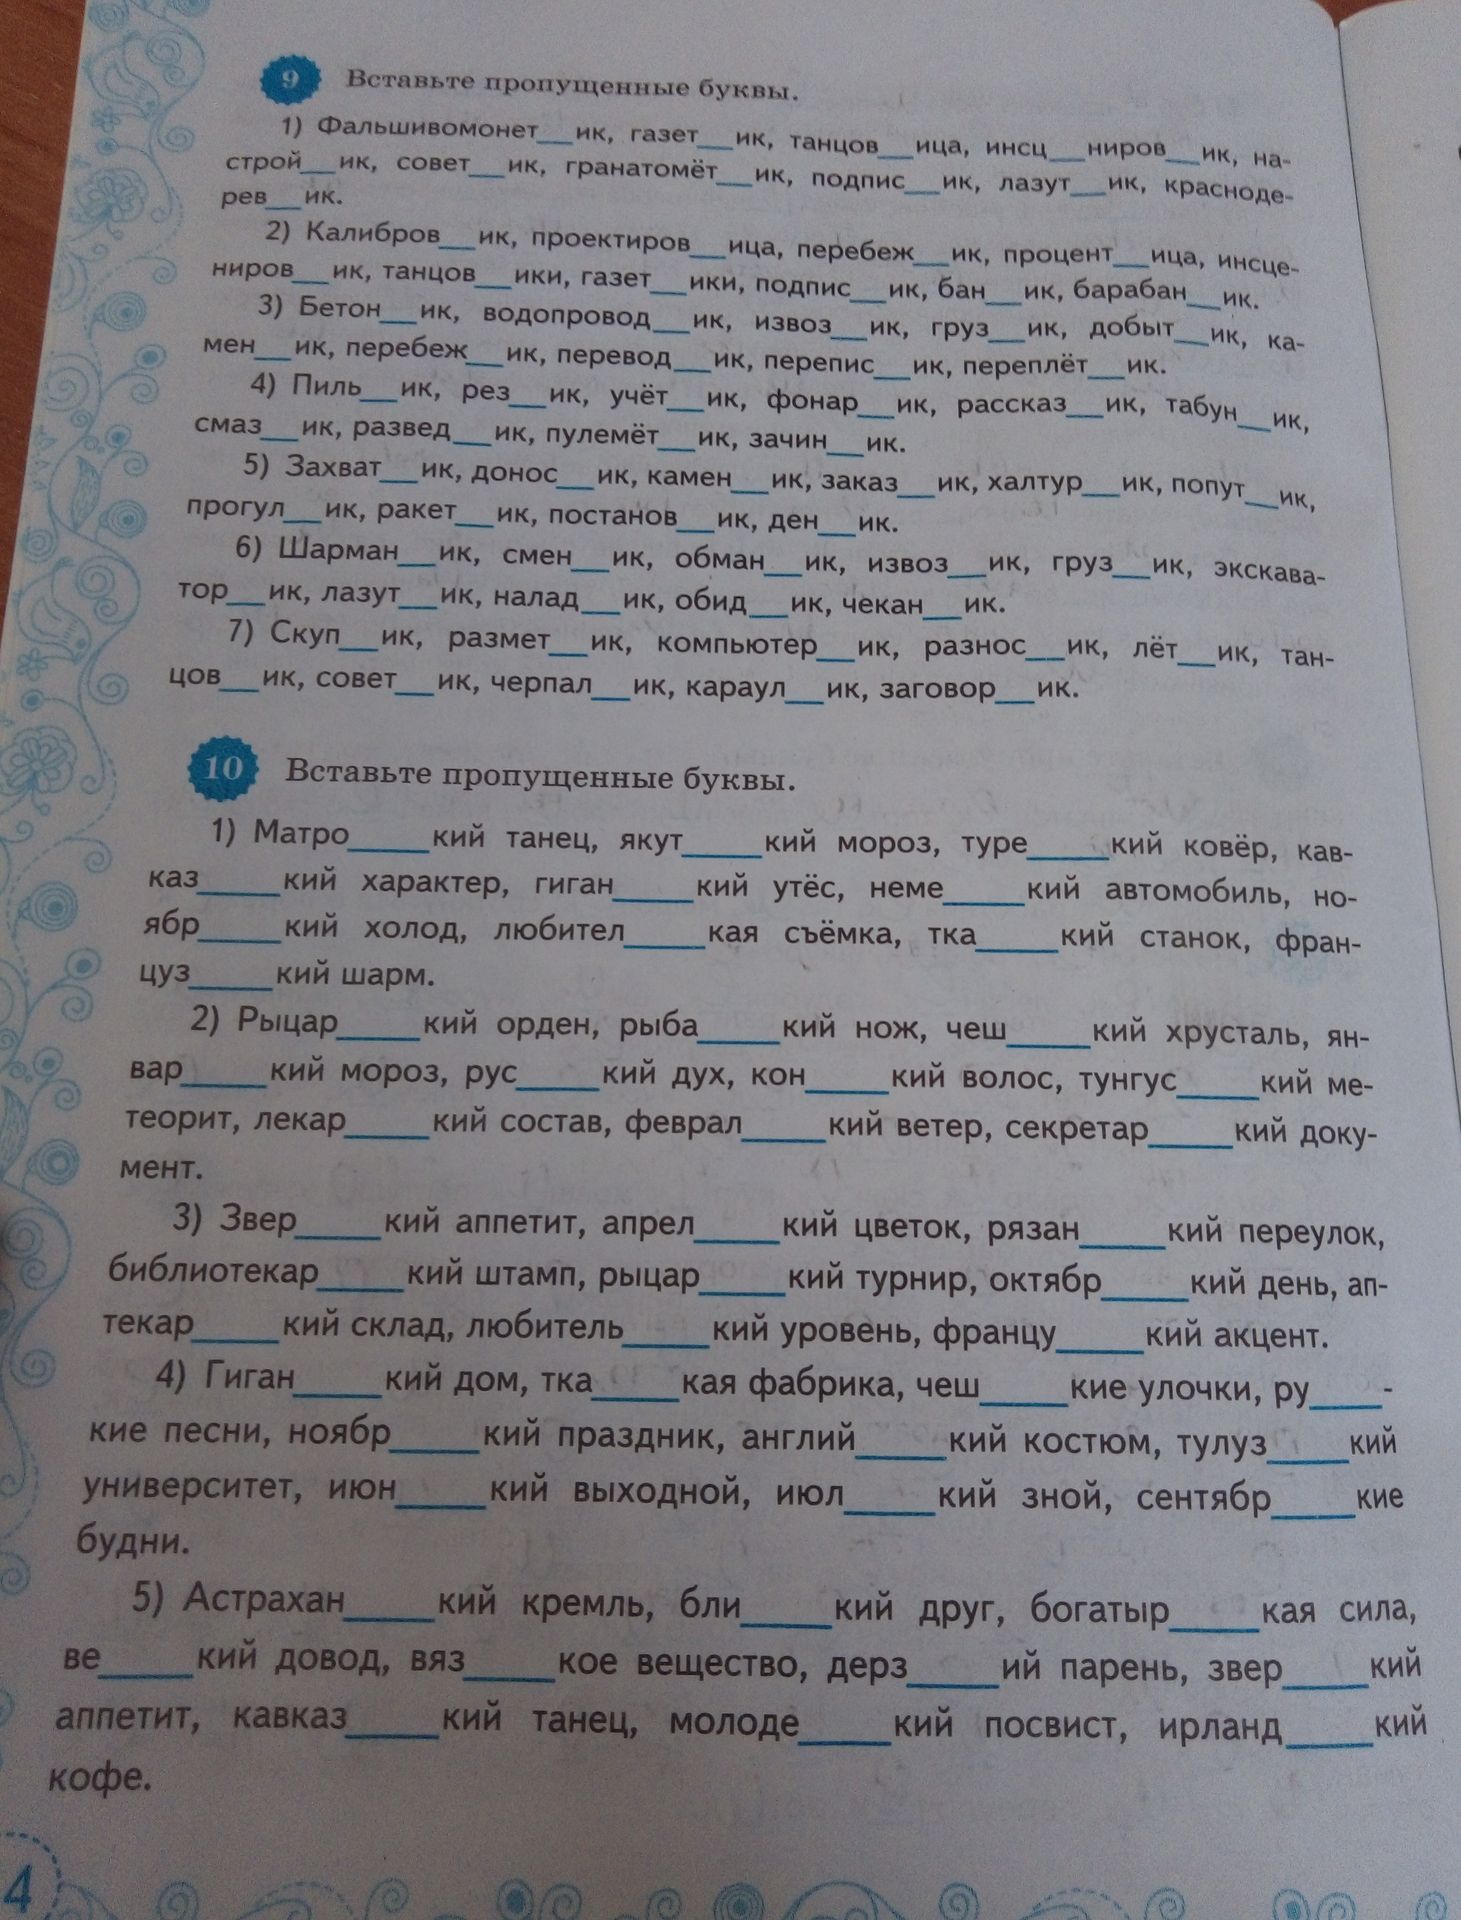 9 Вставьте пропущенные буквы.
1) Фальшивомонет__ик, газет__ик, танцов__ица, инсц__ниров__ик, на-
строй__ик, совет__ик, гранатомёт__ик, подпис__ик, лазут__ик, красноде-
рев__ик.
2) Калибров__ик, проектиров__ица, перебеж__ик, процент__ица, инсце-
ниров__ик, танцов__ики, газет__ики, подпис__ик, бан__ик, барабан__ик.
3) Бетон__ик, водопровод__ик, извоз__ик, груз__ик, добыт__ик, ка-
мен__ик, перебеж__ик, перевод__ик, перепис__ик, переплёт__ик.
4) Пиль__ик, рез__ик, учёт__ик, фонар__ик, рассказ__ик, табун__ик,
смаз__ик, развед__ик, пулемёт__ик, зачин__ик.
5) Захват__ик, донос__ик, камен__ик, заказ__ик, халтур__ик, попут__ик,
прогул__ик, ракет__ик, постанов__ик, ден__ик.
6) Шарман__ик, смен__ик, обман__ик, извоз__ик, груз__ик, экскава-
тор__ик, лазут__ик, налад__ик, обид__ик, чекан__ик.
7) Скуп__ик, размет__ик, компьютер__ик, разнос__ик, лёт__ик, тан-
цов__ик, совет__ик, черпал__ик, караул__ик, заговор__ик.
10 Вставьте пропущенные буквы.
1) Матро____кий танец, якут____кий мороз, туре____кий ковёр, кав-
каз____кий характер, гиган____кий утёс, неме____кий автомобиль, но-
ябр____кий холод, любител____кая съёмка, тка____кий станок, фран-
цуз____кий шарм.
2) Рыцар____кий орден, рыба____кий нож, чеш____кий хрусталь, ян-
вар____кий мороз, рус____кий дух, кон____кий волос, тунгус____кий ме-
теорит, лекар____кий состав, феврал____кий ветер, секретар____кий доку-
мент.
3) Звер____кий аппетит, апрел____кий цветок, рязан____кий переулок,
библиотекар____кий штамп, рыцар____кий турнир, октябр____кий день, ап-
текар____кий склад, любитель____кий уровень, францу____кий акцент.
4) Гиган____кий дом, тка____кая фабрика, чеш____кие улочки, ру____-
кие песни, ноябр____кий праздник, английй____кий костюм, тулуз____кий
университет, июн____кий выходной, июл____кий зной, сентябр____кие
будни.
5) Астрахан____кий кремль, бли____кий друг, богатыр____кая сила,
ве____кий довод, вяз____кое вещество, дерз____ий парень, звер____кий
аппетит, кавказ____кий танец, молоде____кий посвист, ирланд____кий
кофе.
4